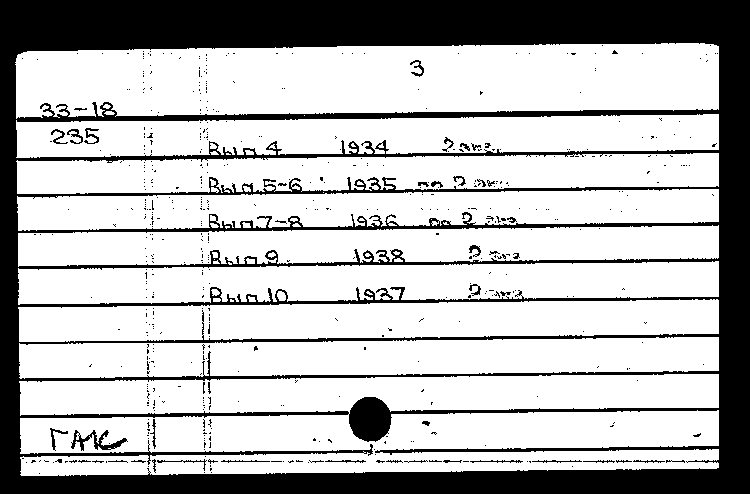 3
33-18
235
Вып.4 1934 2 экз.
Вып.5-6 1935 по 2 экз.
Вып.7-8 1936 по 2 экз.
Вып.9 1938 2 экз.
Вып.10 1937 2 экз.
ГАК